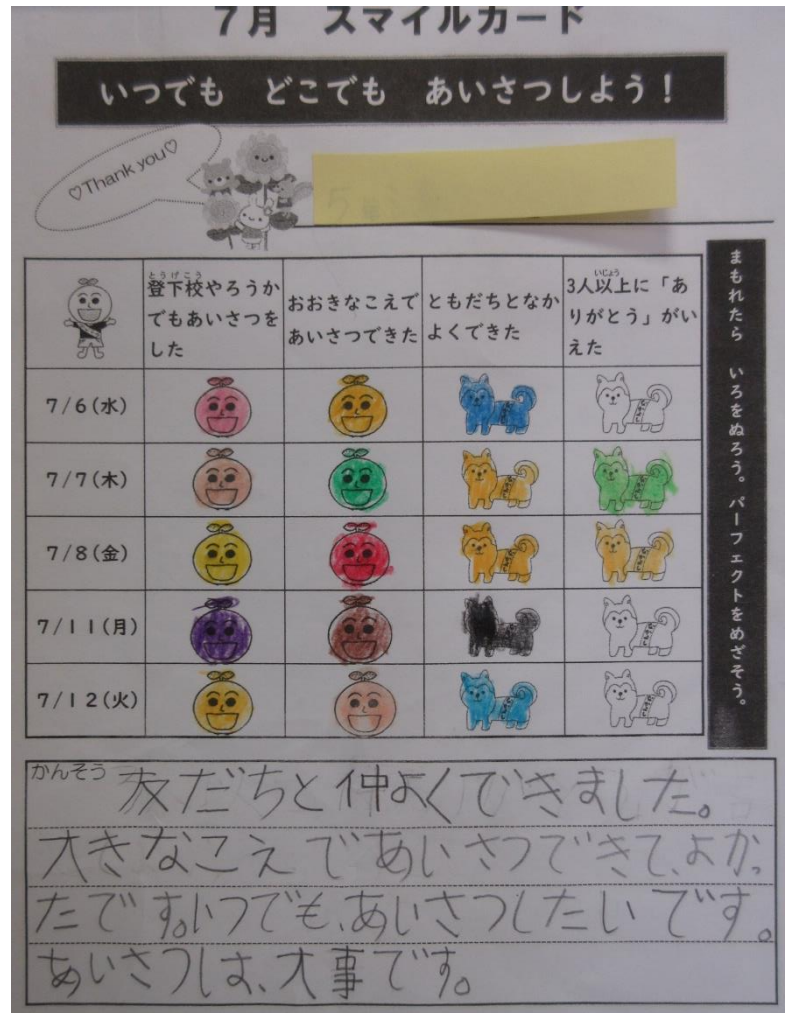 7月 スマイルカード
いつでも どこでも あいさつしよう!
♡Thank you♡
とうげこう
登下校やろうか
でもあいさつを
した
おおきなこえで
あいさつできた
ともだちとなか
よくできた
いじょう
3人以上に「あ
りがとう」がい
えた
7/6(水)
7/7(木)
7/8(金)
7/11(月)
7/12(火)
まもれたら いろをぬろう。パーフェクトをめざそう。
かんそう
友だちと仲よくできました。
大きなこえであいさつできて、よかっ
たです。いつでも、あいさつしたいです。
あいさつは、大事です。